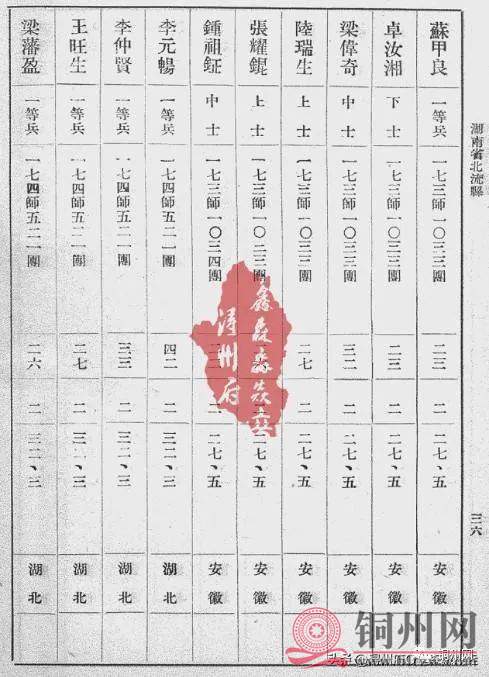 湖南省北流縣
三六
蘇甲良 一等兵 一七三師一〇三三團 二三 二 二七、五 安徽
卓汝湘 下士 一七三師一〇三三團 二三 二 二七、五 安徽
梁偉奇 中士 一七三師一〇三三團 三二 二 二七、五 安徽
陸瑞生 上士 一七三師一〇三三團 二七 二 二七、五 安徽
張耀錕 上士 一七三師一〇三三團 二 二七、五 安徽
鍾祖鉦 中士 一七三師一〇三四團 二 二七、五 安徽
李元暢 一等兵 一七四師五二一團 四二 二 三二、三 湖北
李仲賢 一等兵 一七四師五二一團 三三 二 三二、三 湖北
王旺生 一等兵 一七四師五二一團 二七 二 三二、三 湖北
梁藩盈 一等兵 一七四師五二一團 二六 二 三二、三 湖北
鑫森淼焱垚
潯州府
铜州网